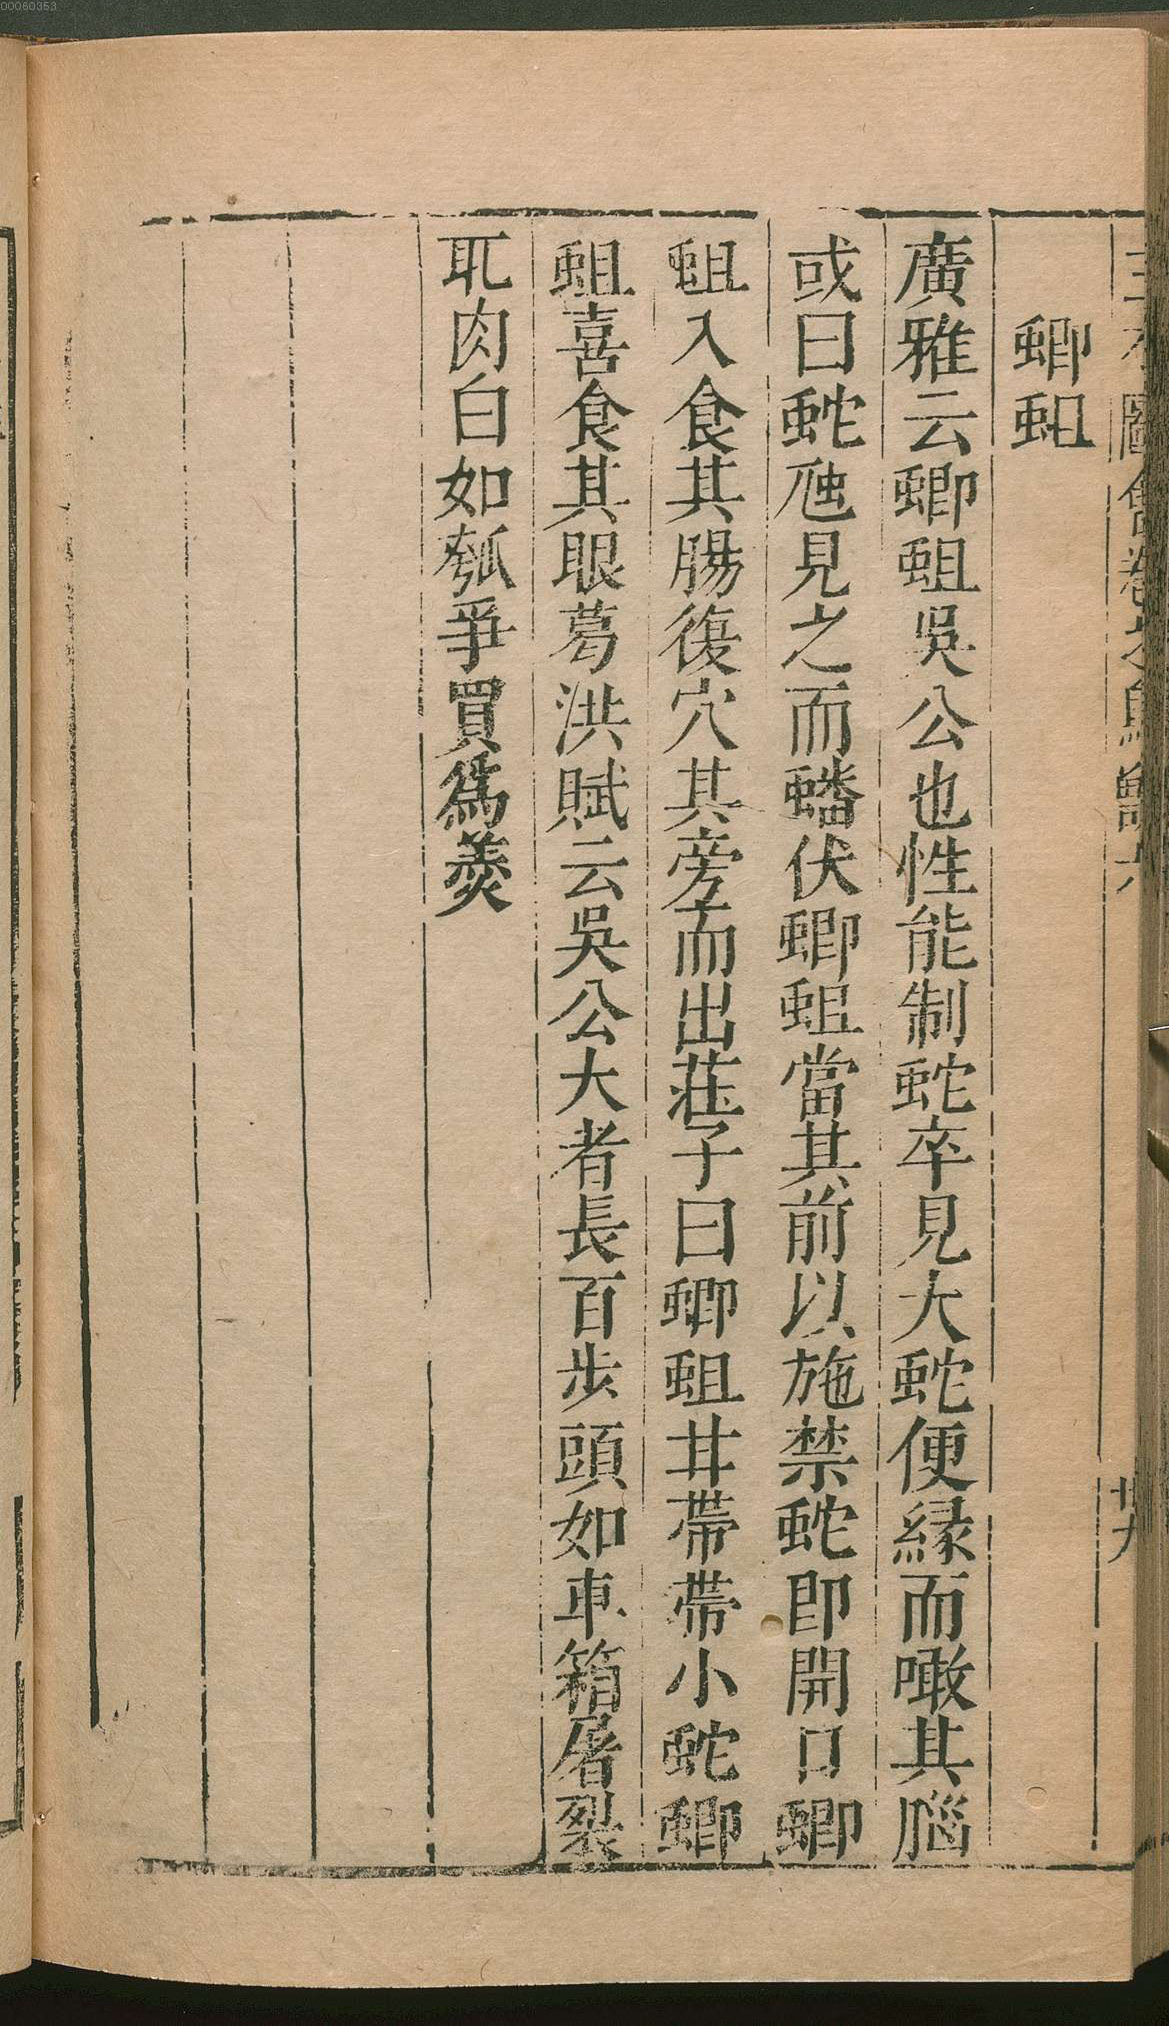 00060353
蝍蛆
廣雅云蝍蛆吳公也性能制蛇卒見大蛇便緣而噉其腦
或曰蛇虺見之而蟠伏蝍蛆當其前以施禁蛇即開口蝍
蛆入食其腸復穴其旁而出莊子曰蝍蛆甘帶帶小蛇蝍
蛆喜食其眼葛洪賦云吳公大者長百步頭如車箱屠裂
取肉白如瓠爭買為羹